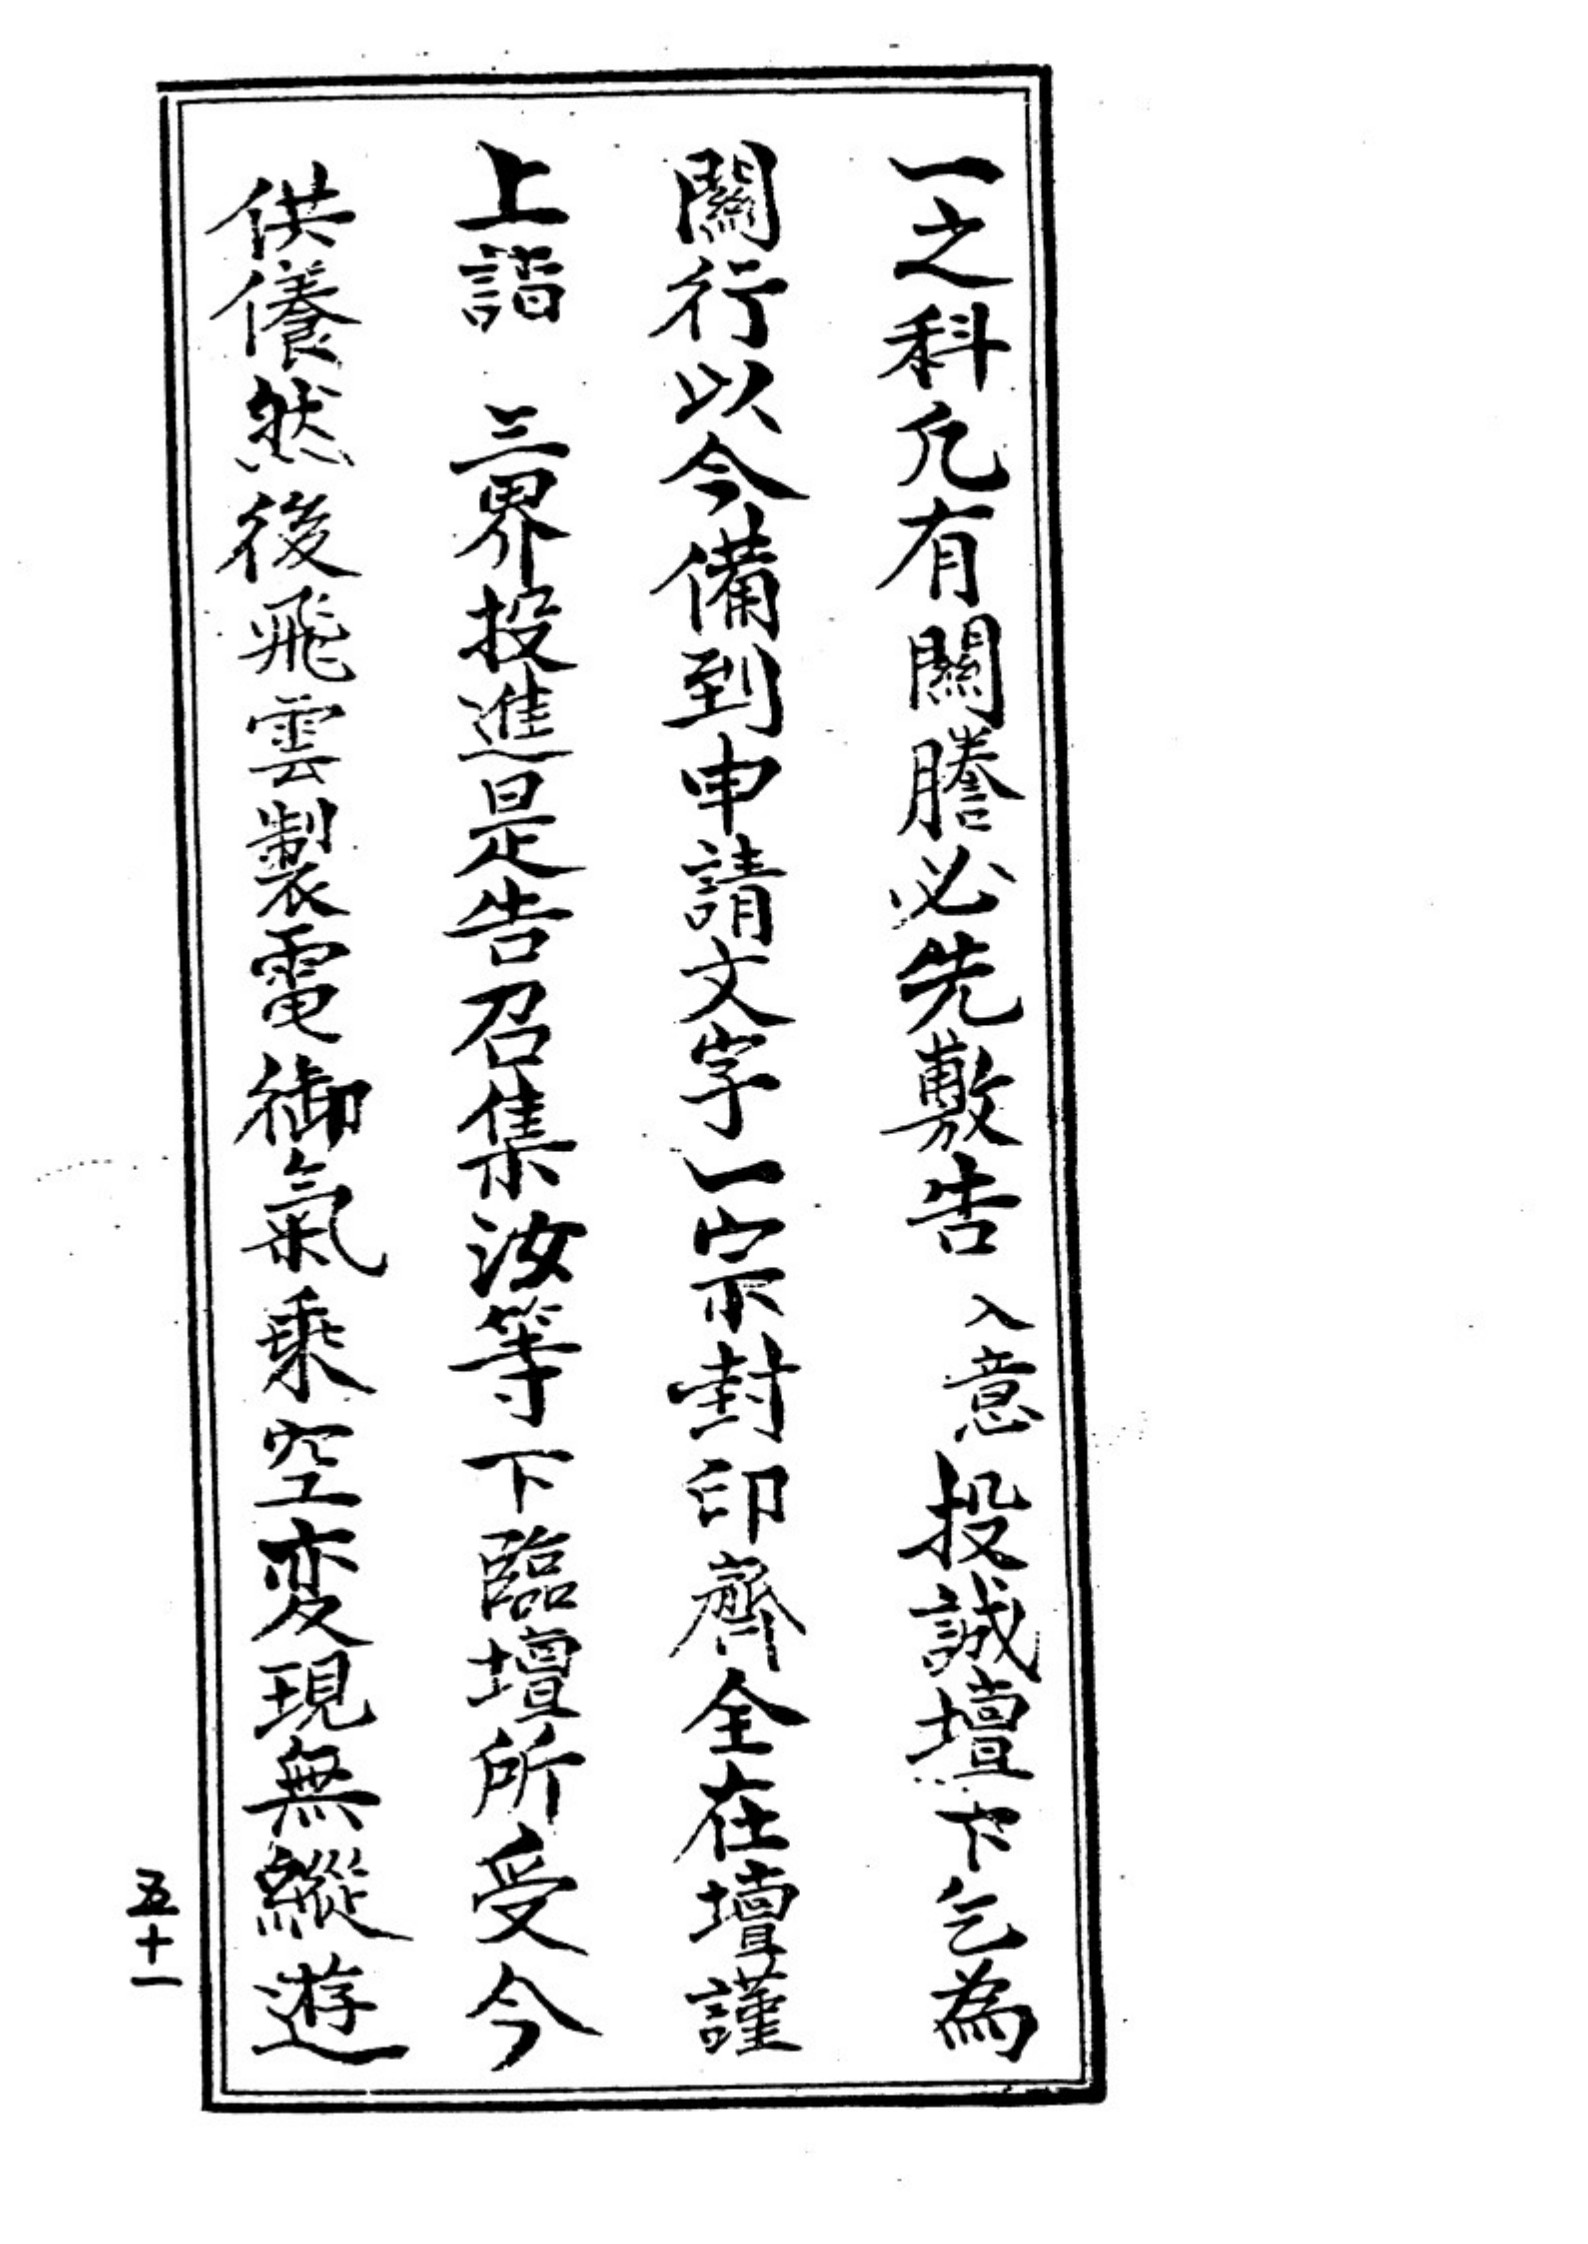 一之科凢有關謄必先敷告 入意 投誠壇下乞為
關行以今備到申請文字一宗封印齊全在壇謹
上詣 三界投進是告召集汝等下臨壇所受今
供儀然後飛雲製電御氣乘空变現無縱遊
五十一